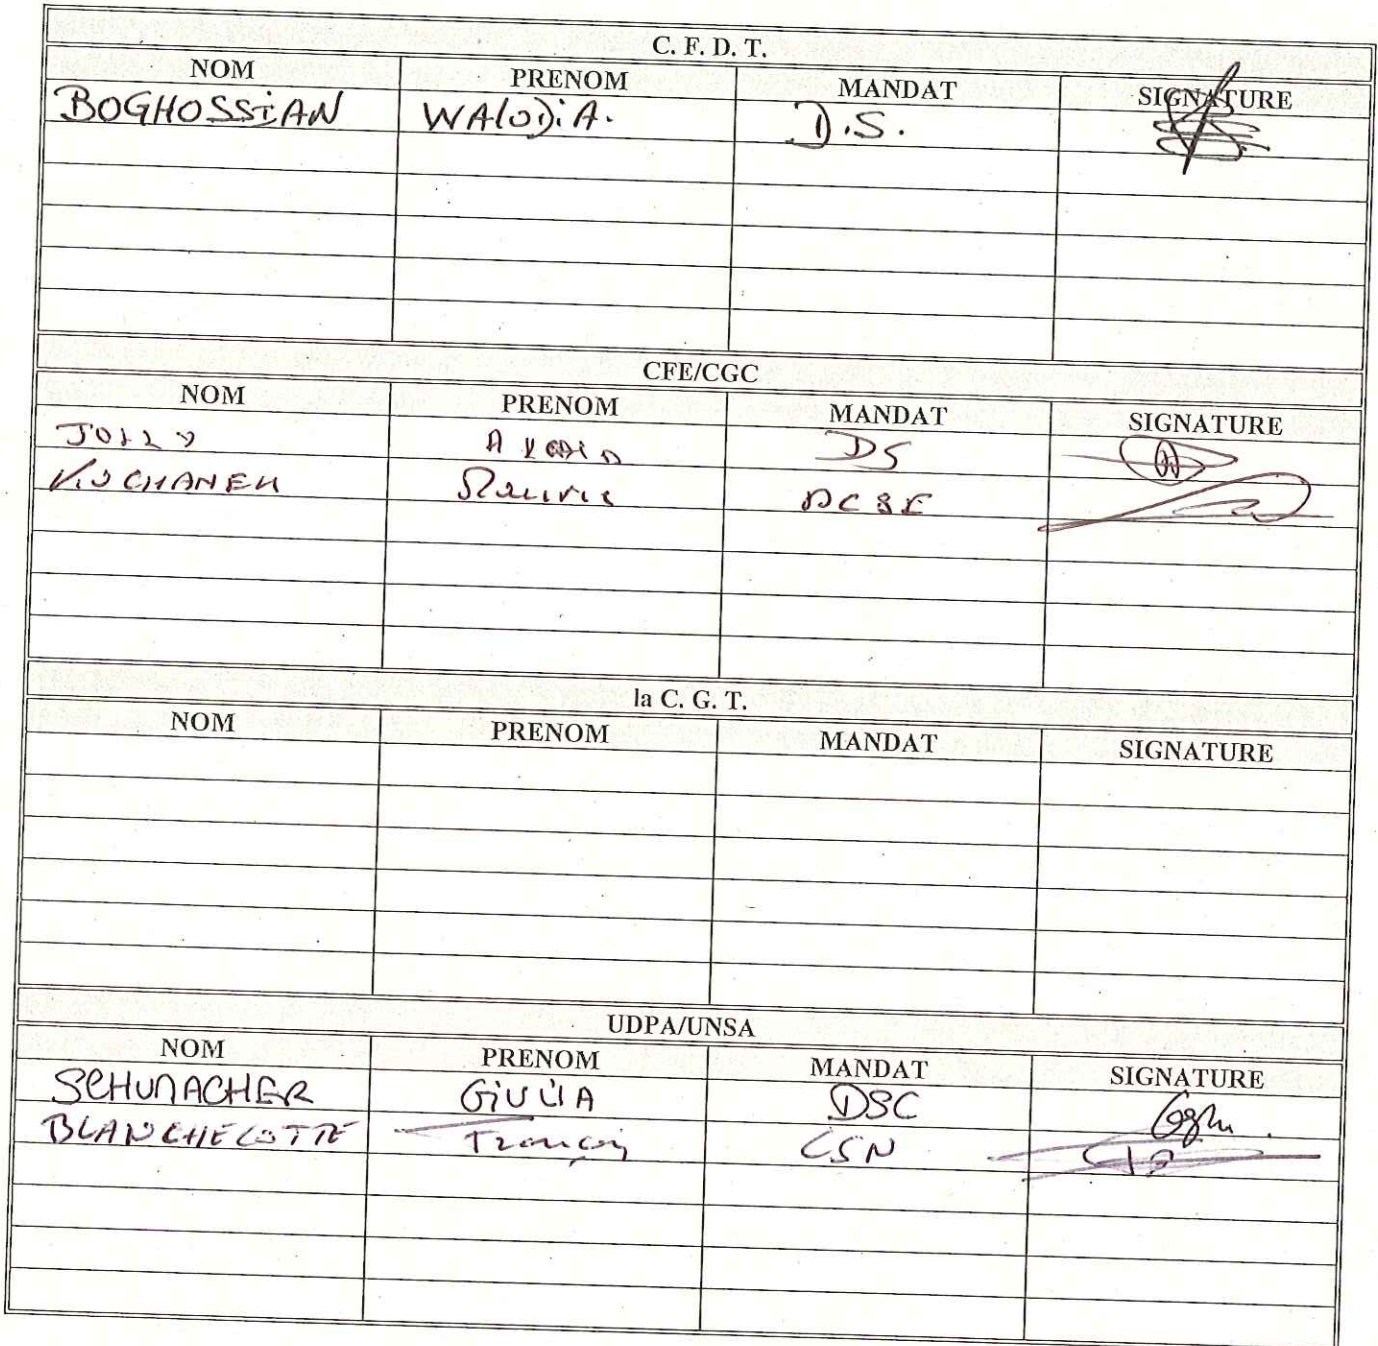 C. F. D. T.
NOM PRENOM MANDAT SIGNATURE
BOGHOSSiAN WAlODiA. D.S.
CFE/CGC
NOM PRENOM MANDAT SIGNATURE
JOLLY DS
KOCHANEK
la C. G. T.
NOM PRENOM MANDAT SIGNATURE
UDPA/UNSA
NOM PRENOM MANDAT SIGNATURE
SCHUMACHER GiULiA DSC
BLANCHECOTTE François CSN